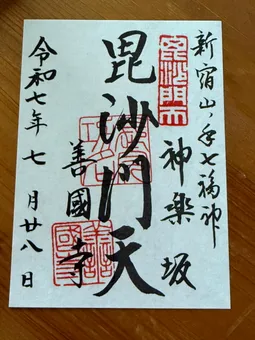 新宿山ノ手七福神
神楽坂
毘沙門天
毘沙門天
善國寺
善國寺
令和七年七月廿八日